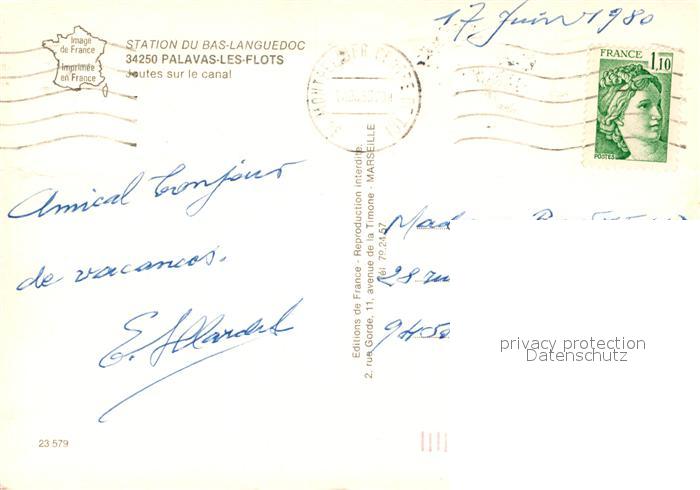 17 Juin 1980
Image
de France
Imprimée
en France
STATION DU BAS-LANGUEDOC
34250 PALAVAS-LES-FLOTS
Joutes sur le canal
FRANCE 1,10
POSTES
Amical bonjour
de vacances.
Editions de France - Reproduction interdite
2, rue Gorde, 11, avenue de la Timone - MARSEILLE
Tél. 79.24.57
28 ru
privacy protection
Datenschutz
23 579